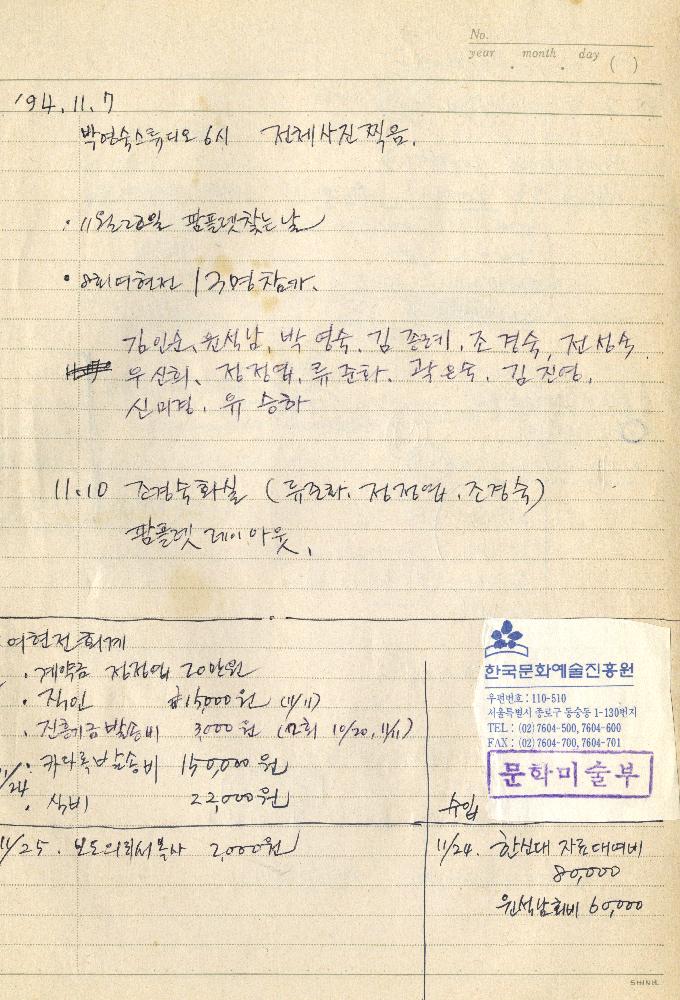 No.
year month day ( )
'94. 11. 7
박영숙스튜디오 6시 전체사진찍음.
· 11월 20일 팜플렛찾는날
· 8회여현전 13명참가.
김인순, 원석남, 박영숙, 김종례, 조경숙, 전성숙
우신희, 정정엽, 류준화, 곽은숙, 김진영,
신미경, 유승하
11.10 조경숙화실 (류준화, 정정엽, 조경숙)
팜플렛 레이아웃,
여현전 회계
· 계약금 정정엽 20만원
· 직인 ₩15,000원 (11/11)
· 진흥기금발송비 3,000원 (2회 10/20, 11/11)
11/24 · 카다록발송비 150,000원
· 식비 22,000원
11/25. 보도의뢰서복사 2,000원
한국문화예술진흥원
우편번호 : 110-510
서울특별시 종로구 동숭동 1-130번지
TEL : (02)7604-500, 7604-600
FAX : (02)7604-700, 7604-701
문학미술부
수입
11/24. 한신대 자료대여비
80,000
원석남회비 60,000
SHINIL